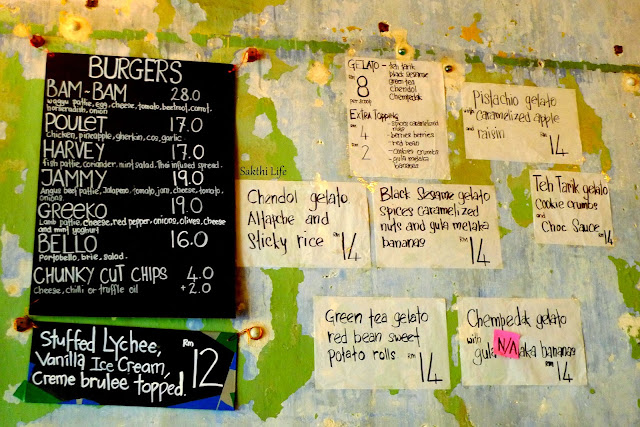 BURGERS
BAM-BAM 28.0
wagyu pattie, egg, cheese, tomato, beetroot, carrot,
horseradish, onion
POULET 17.0
Chicken, pineapple, gherkin, cos, garlic.
HARVEY 17.0
fish pattie, coriander, mint salad, Thai infused spread.
JAMMY 19.0
Angus beef pattie, Jalapeno, tomato, jam, cheese, tomato,
onions.
GREEKO 19.0
Lamb pattie, cheese, red pepper, onions, olives, cheese
and mint yoghurt
BELLO 16.0
Portobello, brie, salad.
CHUNKY CUT CHIPS 4.0
Cheese, chilli or truffle oil +2.0
Stuffed Lychee,
Vanilla Ice Cream,
Creme brulee topped.
RM 12
GELATO - Teh Tarik
black sesame
green tea
chendol
Chempedak
RM 8
per scoop
Extra Topping
RM 4 - spices caramelized nuts
- berries berries
- red bean
RM 2 - cookies crumbs
- gula melaka
- bananas
Pistachio gelato
with caramelized apple
and raisin RM 14
Sakthi Life
Chendol gelato
Attapche and
Sticky rice RM 14
Black Sesame gelato
spices caramelized
nuts and gula melaka
bananas RM 14
Teh Tarik gelato
Cookie crumbs
and
Choc Sauce RM 14
Green tea gelato
red bean sweet
potato rolls RM 14
Chempedak gelato
with
gula N/A aka bananas
RM 14